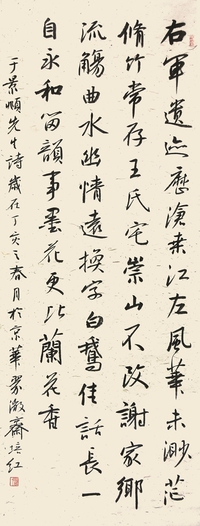 右军遗迹历沧桑江左风华未渺茫
脩竹常存王氏宅崇山不改謝家鄉
流觴曲水幽情遠換字白鵝佳話長一
自永和留韻事墨花更比蘭花香
于景頫先生詩歲在丁亥之春月於京華翠微齋培红